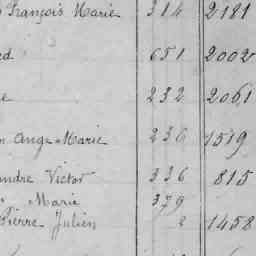 François Marie 314 2181
651 2002
232 2061
Ange Marie 236 1519
Victor 336 815
Marie 379
Pierre Julien 2 1458